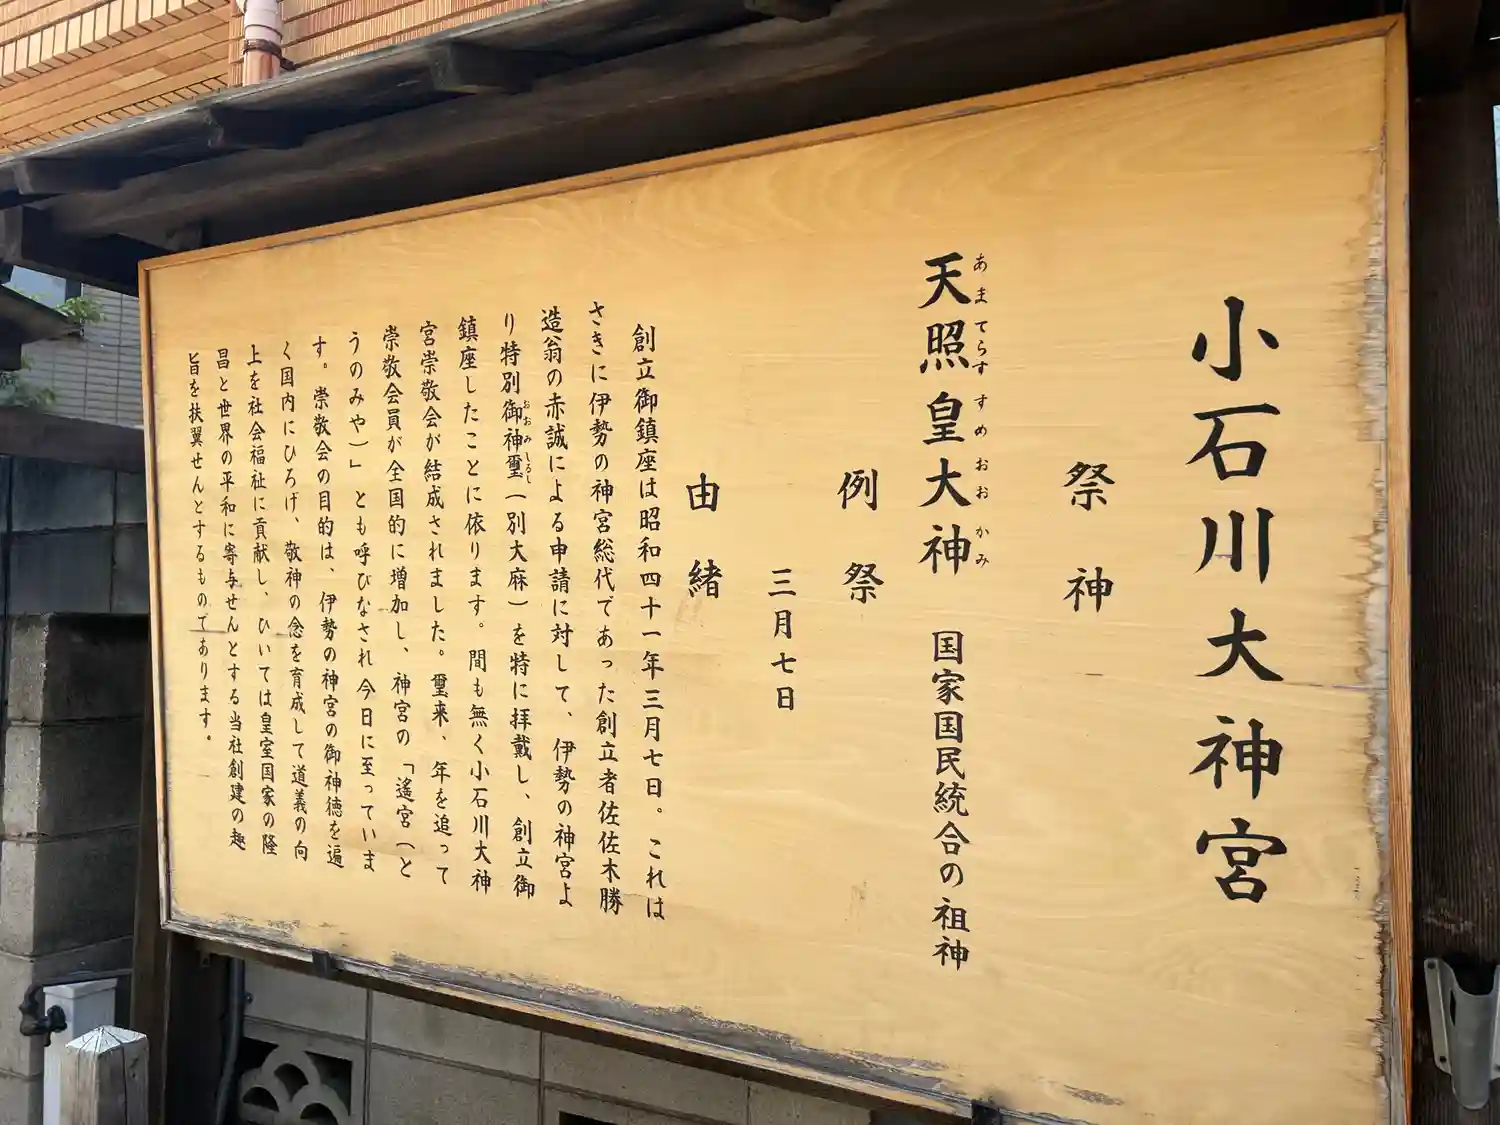 小石川大神宮
祭神
天照皇大神 国家国民統合の祖神
あまてらす すめおおかみ
例祭
三月七日
由緒
創立御鎮座は昭和四十一年三月七日。これは
さきに伊勢の神宮総代であった創立者佐佐木勝
造翁の赤誠による申請に対して、伊勢の神宮よ
り特別御神璽(別大麻)を特に拝戴し、創立御
おおみしるし
鎮座したことに依ります。間も無く小石川大神
宮崇敬会が結成されました。璽来、年を追って
崇敬会員が全国的に増加し、神宮の「遙宮(と
うのみや)」とも呼びなされ今日に至っていま
す。崇敬会の目的は、伊勢の神宮の御神徳を遍
く国内にひろげ、敬神の念を育成して道義の向
上を社会福祉に貢献し、ひいては皇室国家の隆
昌と世界の平和に寄与せんとする当社創建の趣
旨を扶翼せんとするものであります。